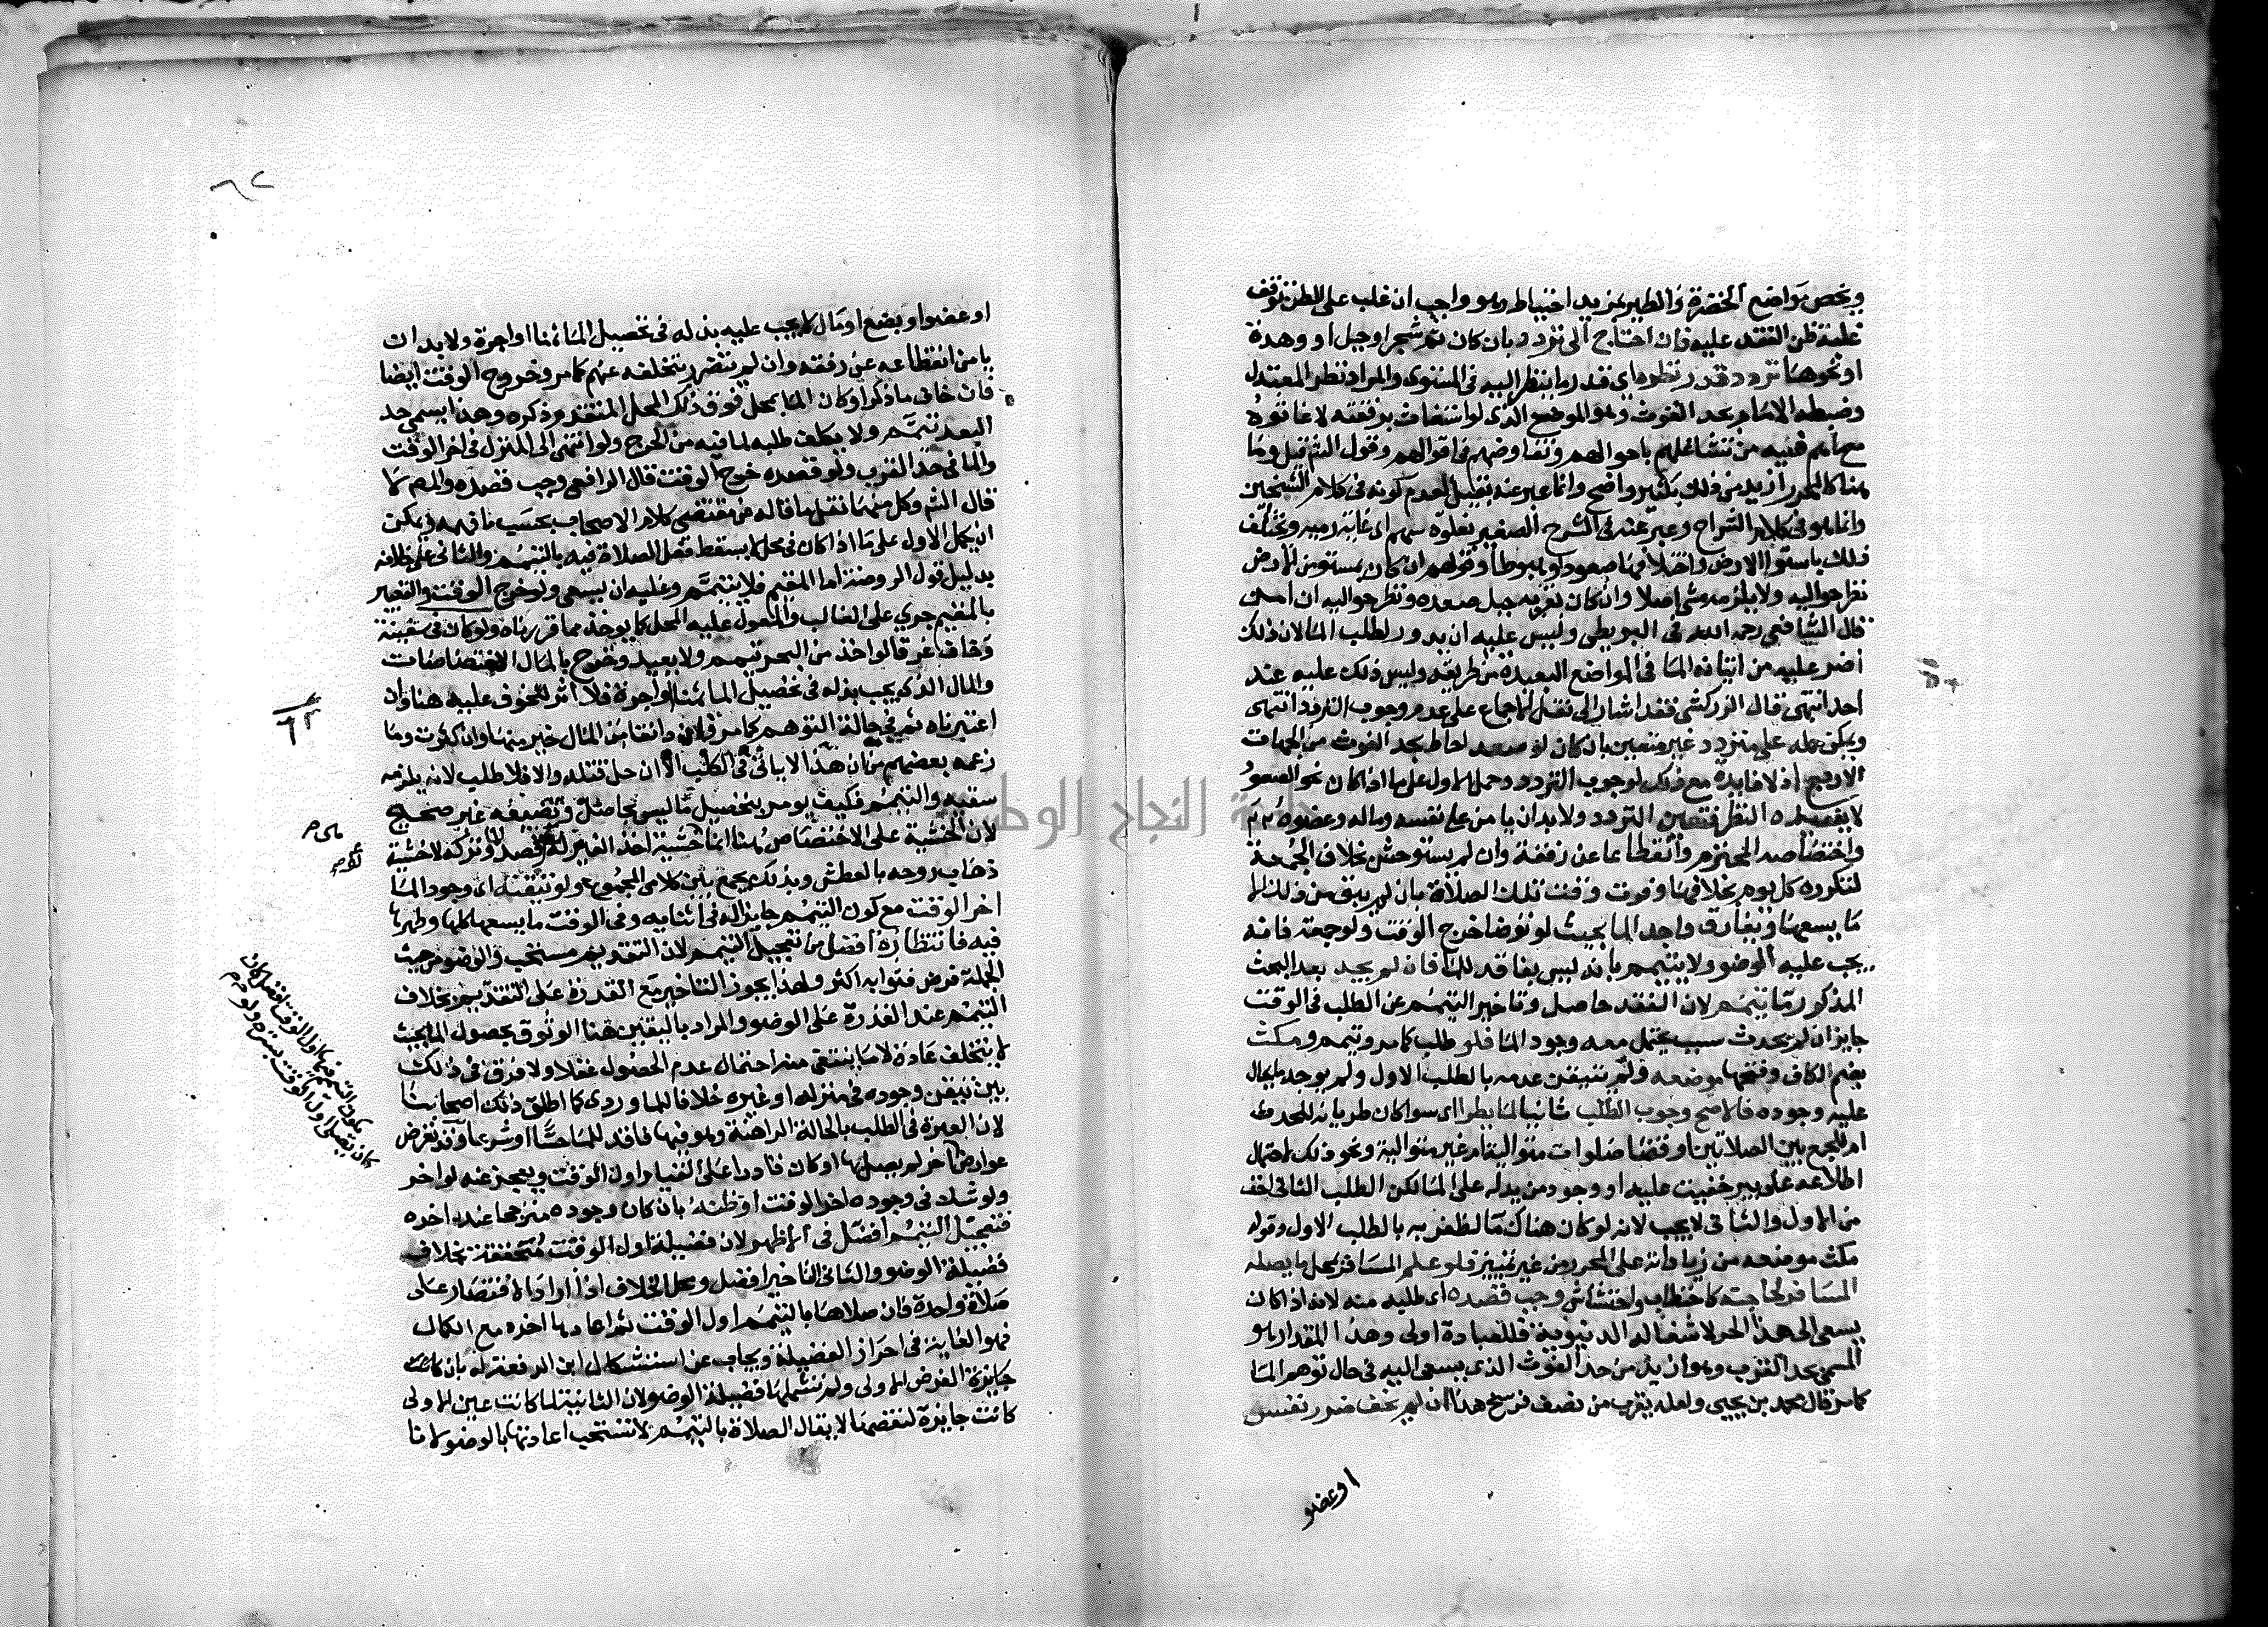 ويخص مواضع الخضرة والطير بمزيد احتياط وهو واجب ان غلب على الظن توقف
غلبة ظن الفقد عليه فان احتاج الى تردد بان كان ثم شجر او جبل او وهدة
او نحوها تردد قدر نظره اي قدر ما ينظر اليه في المستوى والمراد نظر المعتدل
وضبطه الامام بحد الغوث وهو الموضع الذي لو استغاث برفقته لاغاثوه
مع ما هم فيه من تشاغلهم باحوالهم وتفاوضهم في اقوالهم وقول الشرقيل وما
هنا كالمحرر ازيد من ذلك بكثير واضح وانما عبر عنه بقيل لعدم كونه في كلام الشيخين
وانما هو في كلام الشراح وعبر عنه في الشرح الصغير بغلوة سهم اي غاية رميه ويختلف
ذلك باستوا الارض واختلافها صعودا وهبوطا وقولهم ان كان بمستو من الارض
نظر حواليه ولا يلزمه مشي اصلا وان كان بقربه جبل صعده ونظر حواليه ان امن
قال الشافعي رحمه الله في البويطي وليس عليه ان يدور لطلب الما لان ذلك
اضر عليه من اتيانه الما في المواضع البعيدة من طريقه وليس ذلك عليه عند
احد انتهى قال الزركشي فقد اشار الى نقل الاجماع على عدم وجوب التردد انتهى
ويمكن حمله على تردد غير متعين بان كان لو صعد احاط بحد الغوث من الجهات
الاربع اذ لا فايدة مع ذلك لوجوب التردد وحمل الاول على ما اذا كان نحو الصعود
لا يفيده النظر فتعين التردد ولا بد ان يامن على نفسه وماله وعضوه
واختصاصه المحترم وانقطاعا عن رفقة وان لم يستوحش بخلاف الجمعة
لتكرره كل يوم بخلافها وفوت وقت تلك الصلاة بان لم يبق من ذلك الا
ما يسعها ويفارق واجد الما بحيث لو توضا خرج الوقت ولو جمعة فانه
يجب عليه الوضو ولا يتيمم بانه ليس بفاقد للما فان لم يجد بعد البحث
المذكور تيمم لان الفقد حاصل وتاخير التيمم عن الطلب في الوقت
جايز ان لم يحدث سبب يحتمل معه وجود الما فلو طلب كما مر وتيمم ومكث
بضم الكاف وفتحها موضعه ولم يتيقن عدمه بالطلب الاول ولم يوجد ما يحال
عليه وجوده فالاصح وجوب الطلب ثانيا لما يطرا اي سوا كان طريانه للحدث
ام للجمع بين الصلاتين او قضا صلوات متوالية ام غير متوالية ونحو ذلك لاحتمال
اطلاعه على بير خفيت عليه او وجود من يدله على الما لكن الطلب الثاني اخف
من الاول والثاني لا يجب لانه لو كان هناك ما لظفر به بالطلب الاول وقوله
مكث موضعه من زياداته على المحرر من غير تمييز فلو علم المسافر بمحل ما يصله
المسافر لحاجته كاحتطاب واحتشاش وجب قصده اي طلبه منه لانه اذا كان
يسعى الى هذا الحد لاشغاله الدنيوية فللعبادة اولى وهذا المقدار هو
المسمى بحد القرب وهو ازيد من حد الغوث الذي يسعى اليه في حال توهم الما
كما مر قال محمد بن يحيى ولعله يقرب من نصف فرسخ هذا ان لم يخف ضرر نفس
او عضو
او عضو او بضع او مال لا يجب عليه بذله في تحصيل الما ثمنا او اجرة ولا بد ان
يامن انقطاعه عن رفقه وان لم يتضرر بتخلفه عنهم كما مر وخروج الوقت ايضا
فان خاف ما ذكر او كان الما بمحل فوق ذلك المحل المتقدم ذكره وهذا يسمى حد
البعد تيمم ولا يكلف طلبه لما فيه من الحرج ولو انتهى الى المنزل في اخر الوقت
والما في حد القرب ولو قصده خرج الوقت قال الرافعي وجب قصده والمص لا
قال الشر وكل منهما نقل ما قاله من مقتضى كلام الاصحاب بحسب ما فهمه ويمكن
ان يحمل الاول على ما اذا كان في محل لا يسقط فعل الصلاة فيه بالتيمم والثاني على خلافه
بدليل قول الروضة اما المقيم فلا يتيمم وعليه ان يسعى ولو خرج الوقت والتعبير
بالمقيم جري على الغالب والمعول عليه المحل كما يوخذ مما قررناه ولو كان في سفينة
وخاف غرقا لو اخذ من البحر تيمم ولا يعيد وخرج بالمال الاختصاصات
والمال الذي يجب بذله في تحصيل الما ثمنا او اجرة فلا اثر للخوف عليه هنا وان
اعتبرناه ثم في حالة التوهم كما مر
زعمه بعضهم من ان هذا لا ياتي في الكلب الا ان حل قتله والا فلا طلب لانه يلزمه
سقيه والتيمم فكيف يومر بتحصيل ما ليس بحاصل وتضييعه غير صحيح
لان الخشية على الاختصاص هنا انما خشية اخذ الغير له لو قصد الما وتركه لا خشية
ذهاب روحه بالعطش وبذلك يجمع بين كلامي المجموع ولو تيقنه اي وجود الما
اخر الوقت مع كون التيمم جايزا له في اثنايه وفي الوقت ما يسعها كلها وطهرها
فيه فانتظاره افضل من تعجيل التيمم لان التقديم مستحب والوضو من حيث
الجملة فرض فثوابه اكثر ولهذا يجوز التاخير مع القدرة على التقديم بخلاف
التيمم عند القدرة على الوضو والمراد باليقين هنا الوثوق بحصول الما بحيث
لا يتخلف عادة لا ما ينتفي معه احتمال عدم الحصول عقلا ولا فرق في ذلك
بين تيقن وجوده في منزله او غيره خلافا للماوردي كما اطلق ذلك اصحابنا
لان العبرة في الطلب بالحالة الراهنة وهو فيها فاقد للما حسا او شرعا وقد تعرض
او كان قادرا على القيام اول الوقت ويعجز عنه لو اخر
ولو شك في وجوده اخر الوقت او ظنه بان كان وجوده مترجحا عنده اخره
فتعجيل التيمم افضل في الاظهر لان فضيلة اول الوقت محققة بخلاف
فضيلة الوضو والثاني التاخير افضل ومحل الخلاف اذا اراد الاقتصار على
صلاة واحدة فان صلاها بالتيمم اول الوقت ثم اعادها اخره مع الكمال
فهو الغاية في احراز الفضيلة ويجاب عن استشكال ابن الرفعة له بان
الفرض الاولى ولم تشملها فضيلة الوضو لان الثانية لما كانت عين الاولى
كانت جابرة لنقصها لا يقال الصلاة بالتيمم لا تستحب اعادتها بالوضو لانا